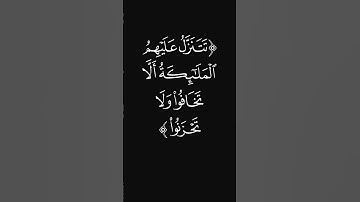 ﴿تَتَنَزَّلُ عَلَيْهِمُ
ٱلْمَلَـٰٓئِكَةُ أَلَّا
تَخَافُوا۟ وَلَا
تَحْزَنُوا۟﴾